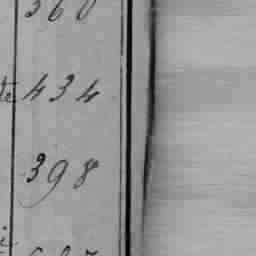 360
434
398